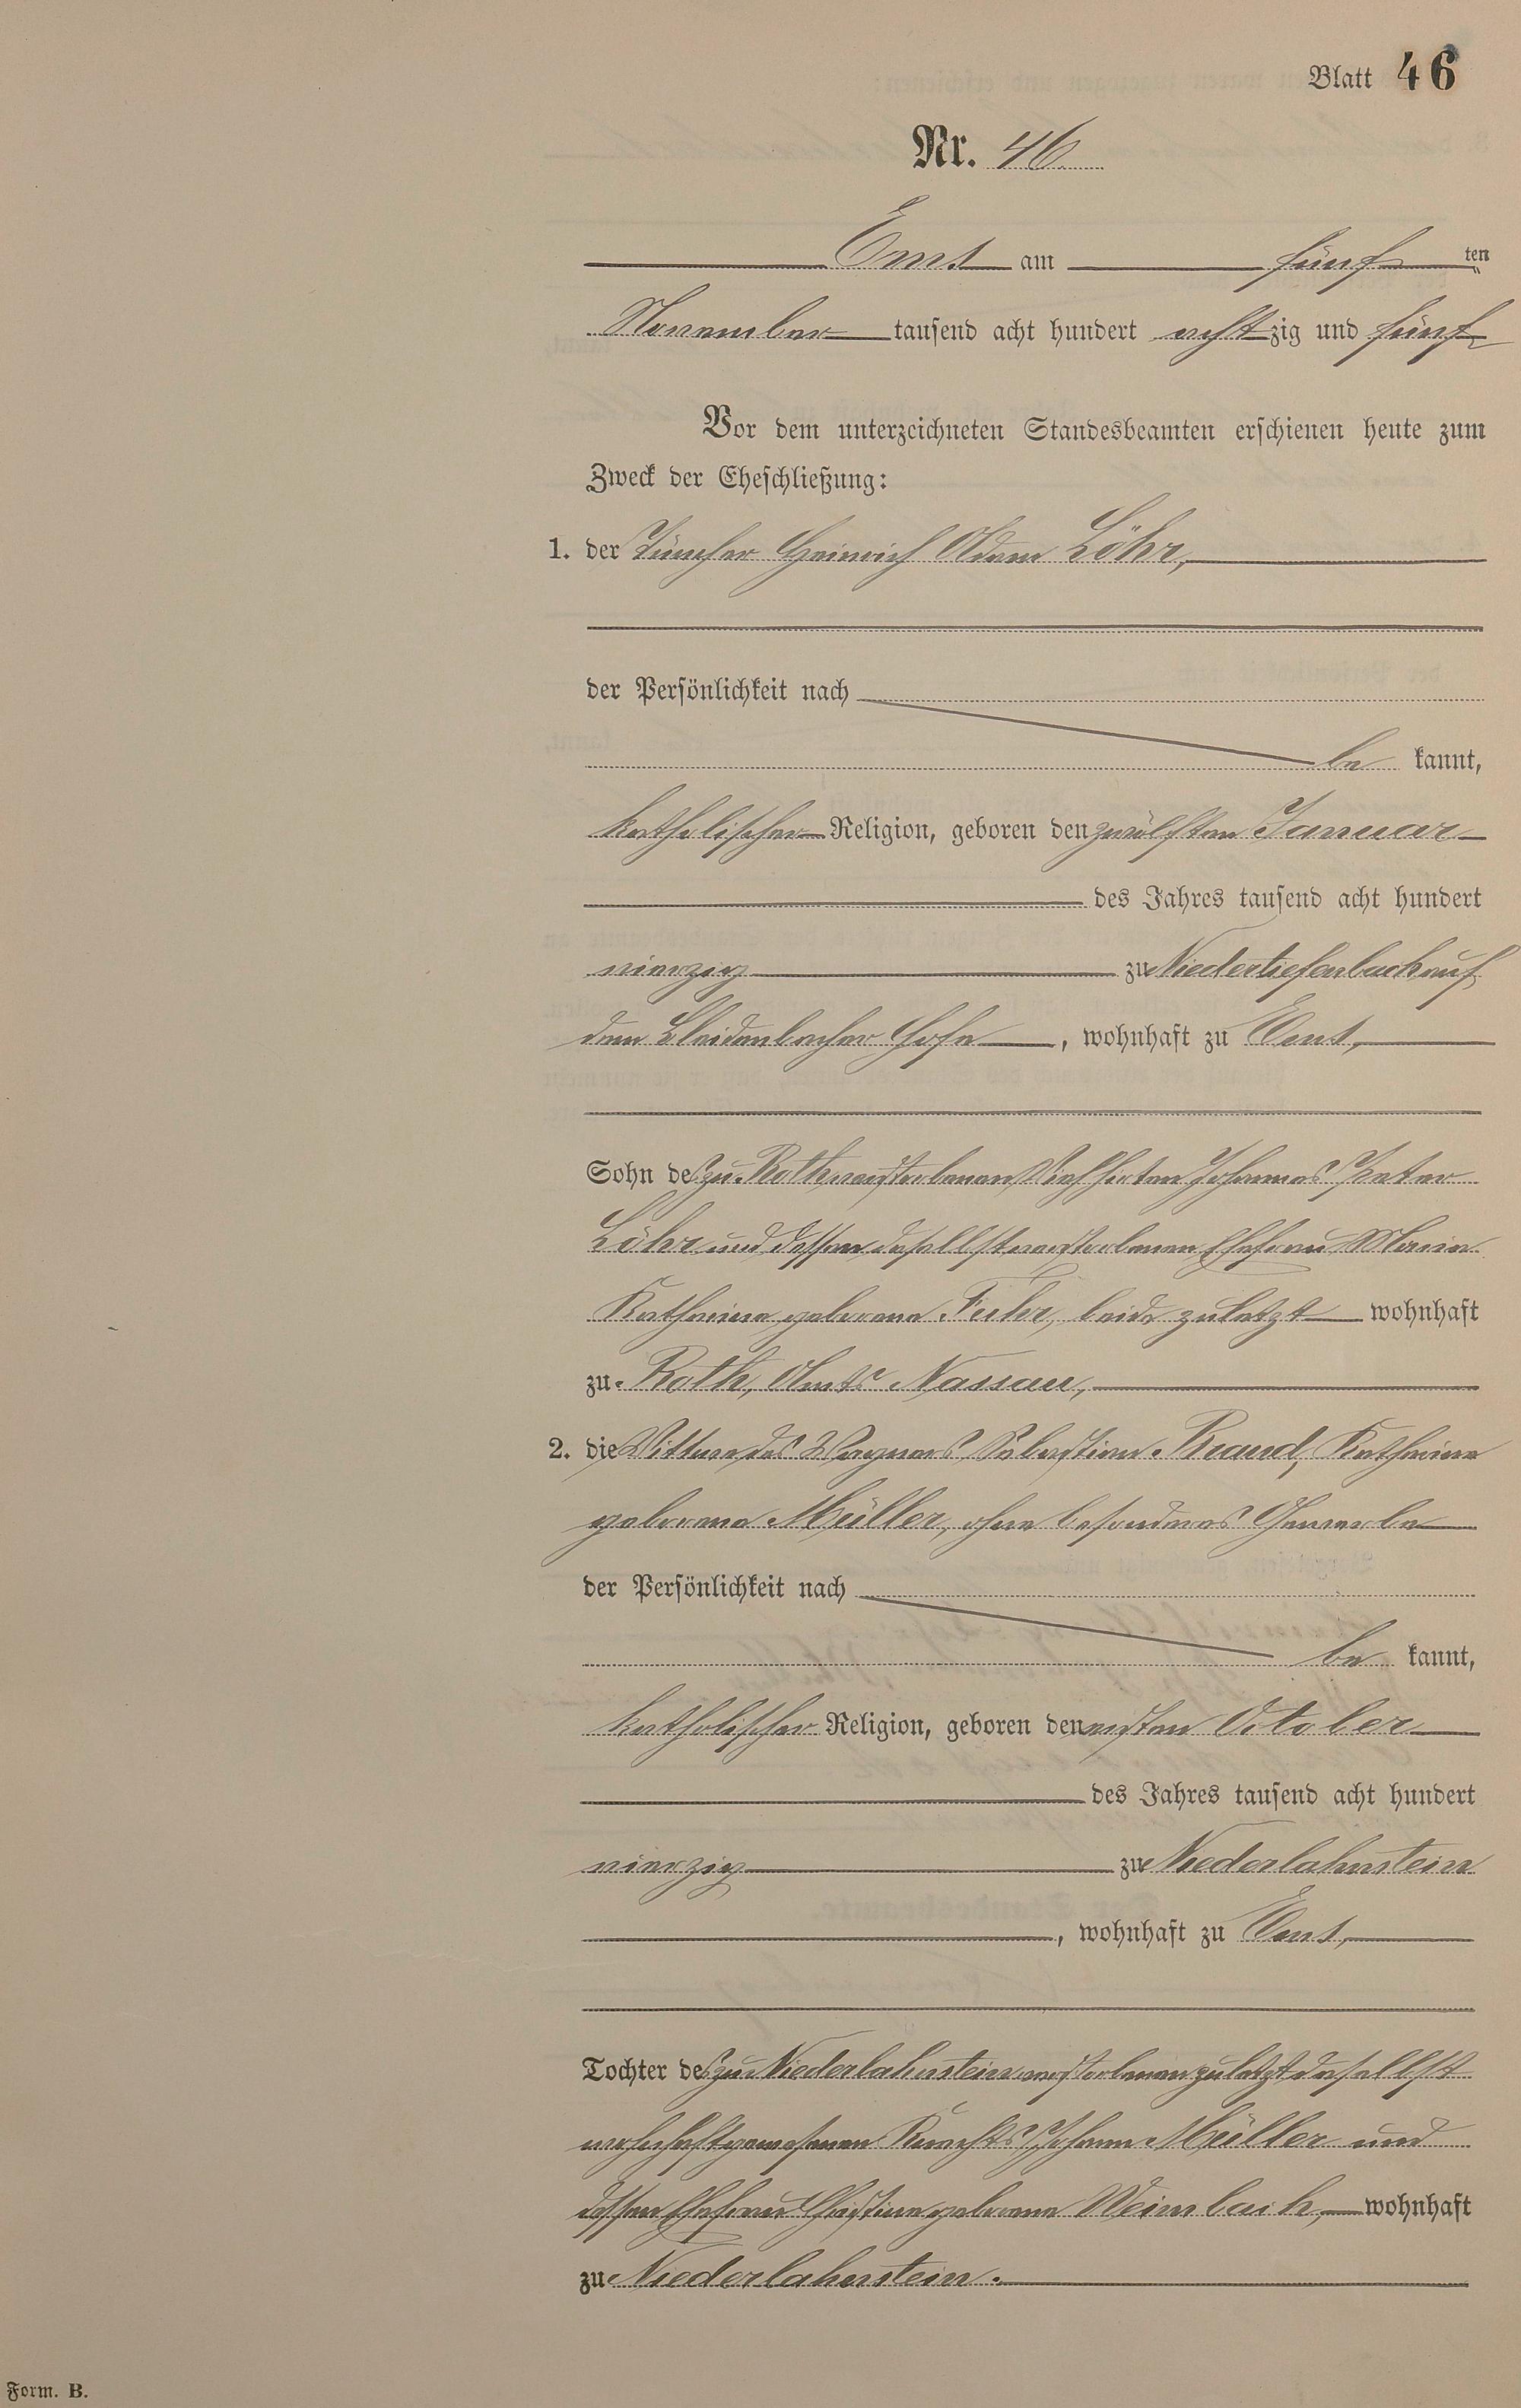 Blatt 46
Nr. 46
Ems am fünf ten
November tausend acht hundert achtzig und fünf
Vor dem unterzeichneten Standesbeamten erschienen heute zum
Zweck der Eheschließung:
1. der Tüncher Heinrich Adam Löhr,
der Persönlichkeit nach
be kannt,
katholischer Religion, geboren den zwölften Januar
des Jahres tausend acht hundert
vierzig zu Niedertiefenbach auf
dem Hofe, wohnhaft zu Ems,
Sohn des zu Roth verstorbenen Viehhirten Johannes Peter
Löhr und dessen daselbst verstorbenen Ehefrau Maria
Katharina geborene Fuhr, beide zuletzt wohnhaft
zu Roth, Amts Nassau,
2. die Wittwe des Wagners Sebastian Brand, Katharina
geborene Müller, ohne besonderes Gewerbe
der Persönlichkeit nach
be kannt,
katholischer Religion, geboren den ersten October
des Jahres tausend acht hundert
vierzig zu Niederlahnstein
, wohnhaft zu Ems,
Tochter des zu Niederlahnstein verstorbenen zuletzt daselbst
wohnhaft gewesenen Knechts Johann Müller und
dessen Ehefrau Christine geborene Weimbach, wohnhaft
zu Niederlahnstein.
Form. B.